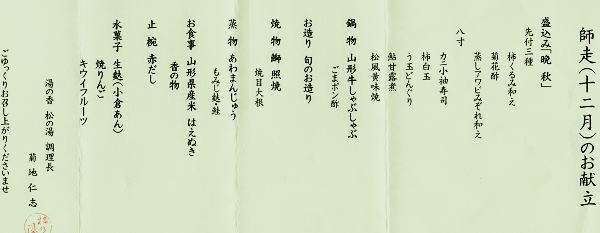 師走(十二月)のお献立
盛込み「晩秋」
先付三種
柿くるみ和え
菊花酢
蒸しアワビみぞれ和え
八寸
カニ小袖寿司
柿白玉
うず玉どんぐり
鮎甘露煮
松風黄味焼
鍋物 山形牛しゃぶしゃぶ
ごまポン酢
お造り 旬のお造り
焼物 鰤 照焼
焼目大根
蒸物 あわまんじゅう
もみじ麩・鮭
お食事 山形県産米 はえぬき
香の物
止椀 赤だし
水菓子 生麩(小倉あん)
焼りんご
キウイフルーツ
湯の香 松の湯 調理長
菊地仁志
ごゆっくりお召し上がりくださいませ